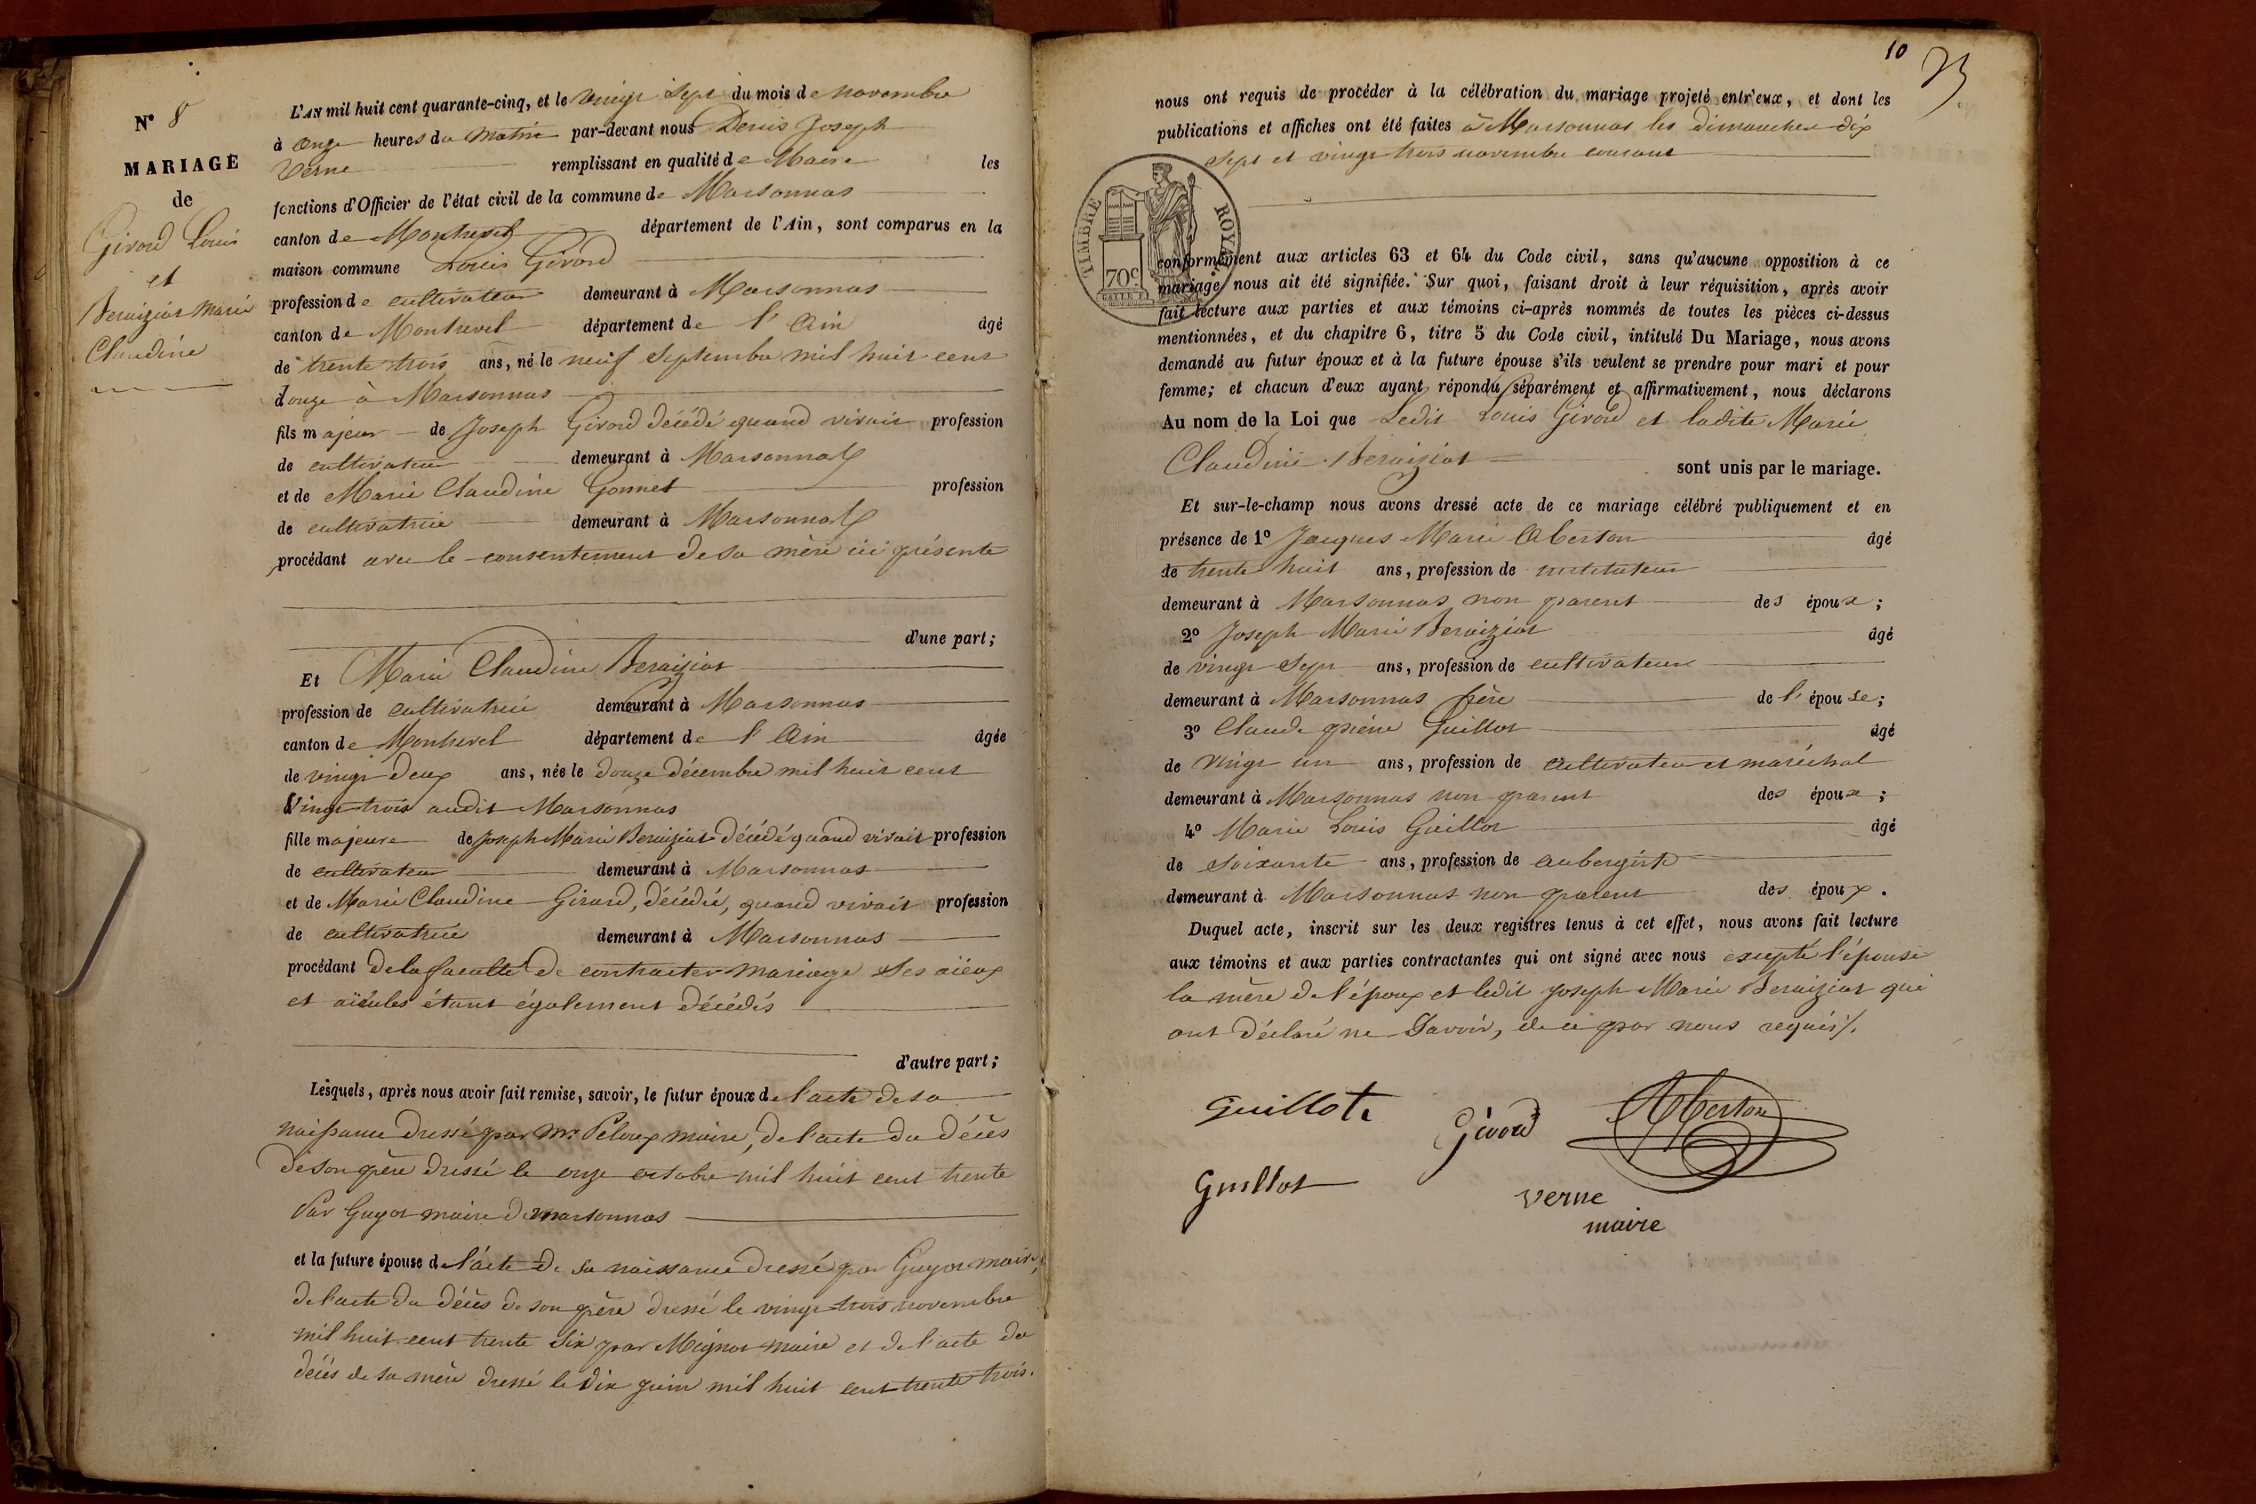 N° 8
MARIAGE
de
Girard Louis
et
Beraiziat Marie
Claudine
L'AN mil huit cent quarante-cinq, et le vingt Sept du mois de novembre
à onze heures du matin par-devant nous Denis Joseph
Verne remplissant en qualité de Maire les
fonctions d'Officier de l'état civil de la commune de Marsonnas
canton de Montrevel département de l'Ain, sont comparus en la
maison commune Louis Girard
profession de cultivateur demeurant à Marsonnas
canton de Montrevel département de l'Ain âgé
de trente trois ans, né le neuf Septembre mil huit cent
douze à Marsonnas
fils majeur de Joseph Girard décédé quand vivait profession
de cultivateur demeurant à Marsonnas
et de Marie Claudine Gonnet profession
de cultivatrice demeurant à Marsonnas
procédant avec le consentement de sa mère ici présente
d'une part;
Et Marie Claudine Beraiziat
profession de cultivatrice demeurant à Marsonnas
canton de Montrevel département de l'Ain âgée
de vingt deux ans, née le douze décembre mil huit cent
Vingt trois audit Marsonnas
fille majeure de Joseph Marie Beraiziat décédé quand vivait profession
de cultivateur demeurant à Marsonnas
et de Marie Claudine Girard, décédée, quand vivait profession
de cultivatrice demeurant à Marsonnas
procédant de la faculté de contracter mariage Ses aïeux
et aïeules étant également décédés
d'autre part;
Lesquels, après nous avoir fait remise, savoir, le futur époux de l'acte de sa
naissance dressé par Mr. Peloux maire, de l'acte du décès
de son père dressé le onze octobre mil huit cent trente
Par Guyot maire de marsonnas
et la future épouse de l'acte de sa naissance dressé par Guyot maire,
de l'acte du décès de son père dressé le vingt trois novembre
mil huit cent trente Six par Mignot maire et de l'acte du
décès de sa mère dressé le dix juin mil huit cent trente trois.
10
nous ont requis de procéder à la célébration du mariage projeté entr'eux, et dont les
publications et affiches ont été faites à Marsonnas les dimanches dix
Sept et vingt trois novembre courant
TIMBRE ROYAL
70c
conformément aux articles 63 et 64 du Code civil, sans qu'aucune opposition à ce
mariage nous ait été signifiée. Sur quoi, faisant droit à leur réquisition, après avoir
fait lecture aux parties et aux témoins ci-après nommés de toutes les pièces ci-dessus
mentionnées, et du chapitre 6, titre 5 du Code civil, intitulé Du Mariage, nous avons
demandé au futur époux et à la future épouse s'ils veulent se prendre pour mari et pour
femme; et chacun d'eux ayant répondu séparément et affirmativement, nous déclarons
Au nom de la Loi que Ledit Louis Girard et ladite Marie
Claudine Beraiziat sont unis par le mariage.
Et sur-le-champ nous avons dressé acte de ce mariage célébré publiquement et en
présence de 1° Jacques Marie Alberton âgé
de trente huit ans, profession de instituteur
demeurant à Marsonnas non parent des époux;
2° Joseph Marie Beraiziat âgé
de vingt Sept ans, profession de cultivateur
demeurant à Marsonnas frère de l'épouse;
3° Claude pierre Guillot âgé
de Vingt un ans, profession de cultivateur et maréchal
demeurant à Marsonnas non parent des époux;
4° Marie Louis Guillot âgé
de Soixante ans, profession de aubergiste
demeurant à Marsonnas non parent des époux.
Duquel acte, inscrit sur les deux registres tenus à cet effet, nous avons fait lecture
aux témoins et aux parties contractantes qui ont signé avec nous excepté l'épouse
la mère de l'époux et ledit Joseph Marie Beraiziat qui
ont déclaré ne Savoir, de ce par nous requis /.
Guillote Girard Alberton
Guillot
Verne
maire